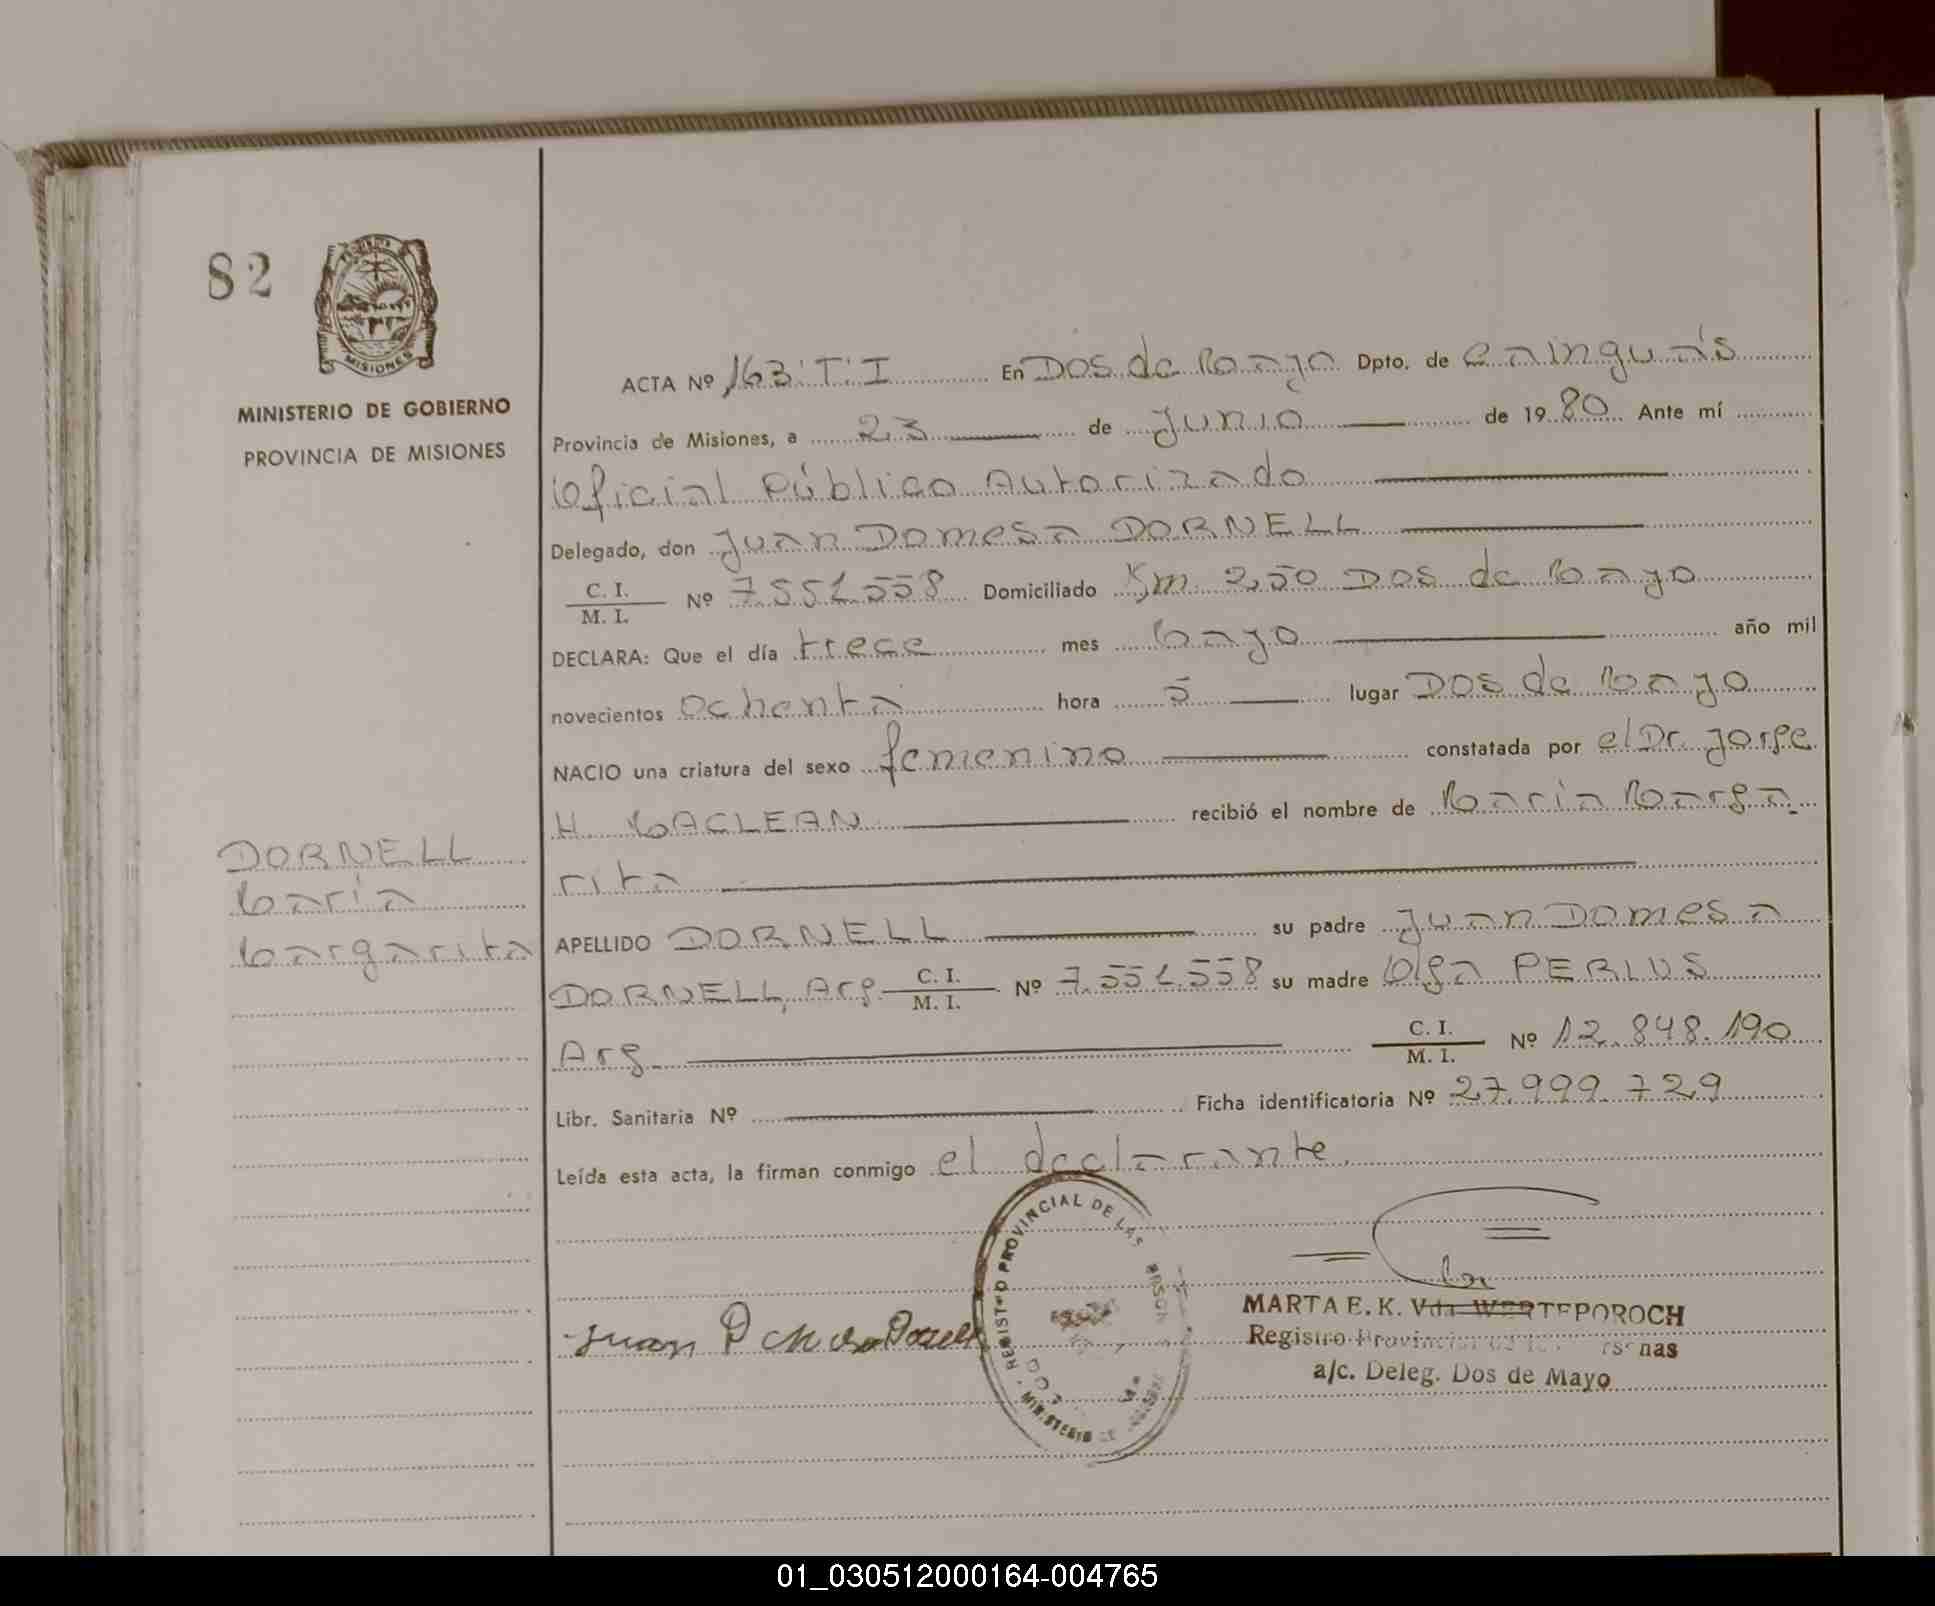 82
MISIONES
MINISTERIO DE GOBIERNO
PROVINCIA DE MISIONES
DORNELL
María
Margarita
ACTA Nº 163 T I En Dos de Mayo Dpto. de Cainguás
Provincia de Misiones, a 23 de Junio de 1980 Ante mí
Oficial Público Autorizado
Delegado, don Juan Domesa DORNELL
C. I.
M. I. Nº 7.551.558 Domiciliado Km. 250 Dos de Mayo
DECLARA: Que el día trece mes Mayo año mil
novecientos ochenta hora 5 lugar Dos de Mayo
NACIO una criatura del sexo femenino constatada por el Dr. Jorge
H. MACLEAN recibió el nombre de María Marga
rita
APELLIDO DORNELL su padre Juan Domesa
DORNELL, Arg. C. I. M. I. Nº 7.551.558 su madre Olga PERLUS
Arg. C. I. M. I. Nº 12.848.190
Libr. Sanitaria Nº Ficha identificatoria Nº 27.999.729
Leída esta acta, la firman conmigo el declarante.
REGISTRO PROVINCIAL DE LAS
MINISTERIO DE
Juan D
MARTA E. K. Vda WERTEPOROCH
Registro Provincial de las Personas
a/c. Deleg. Dos de Mayo
01_030512000164-004765